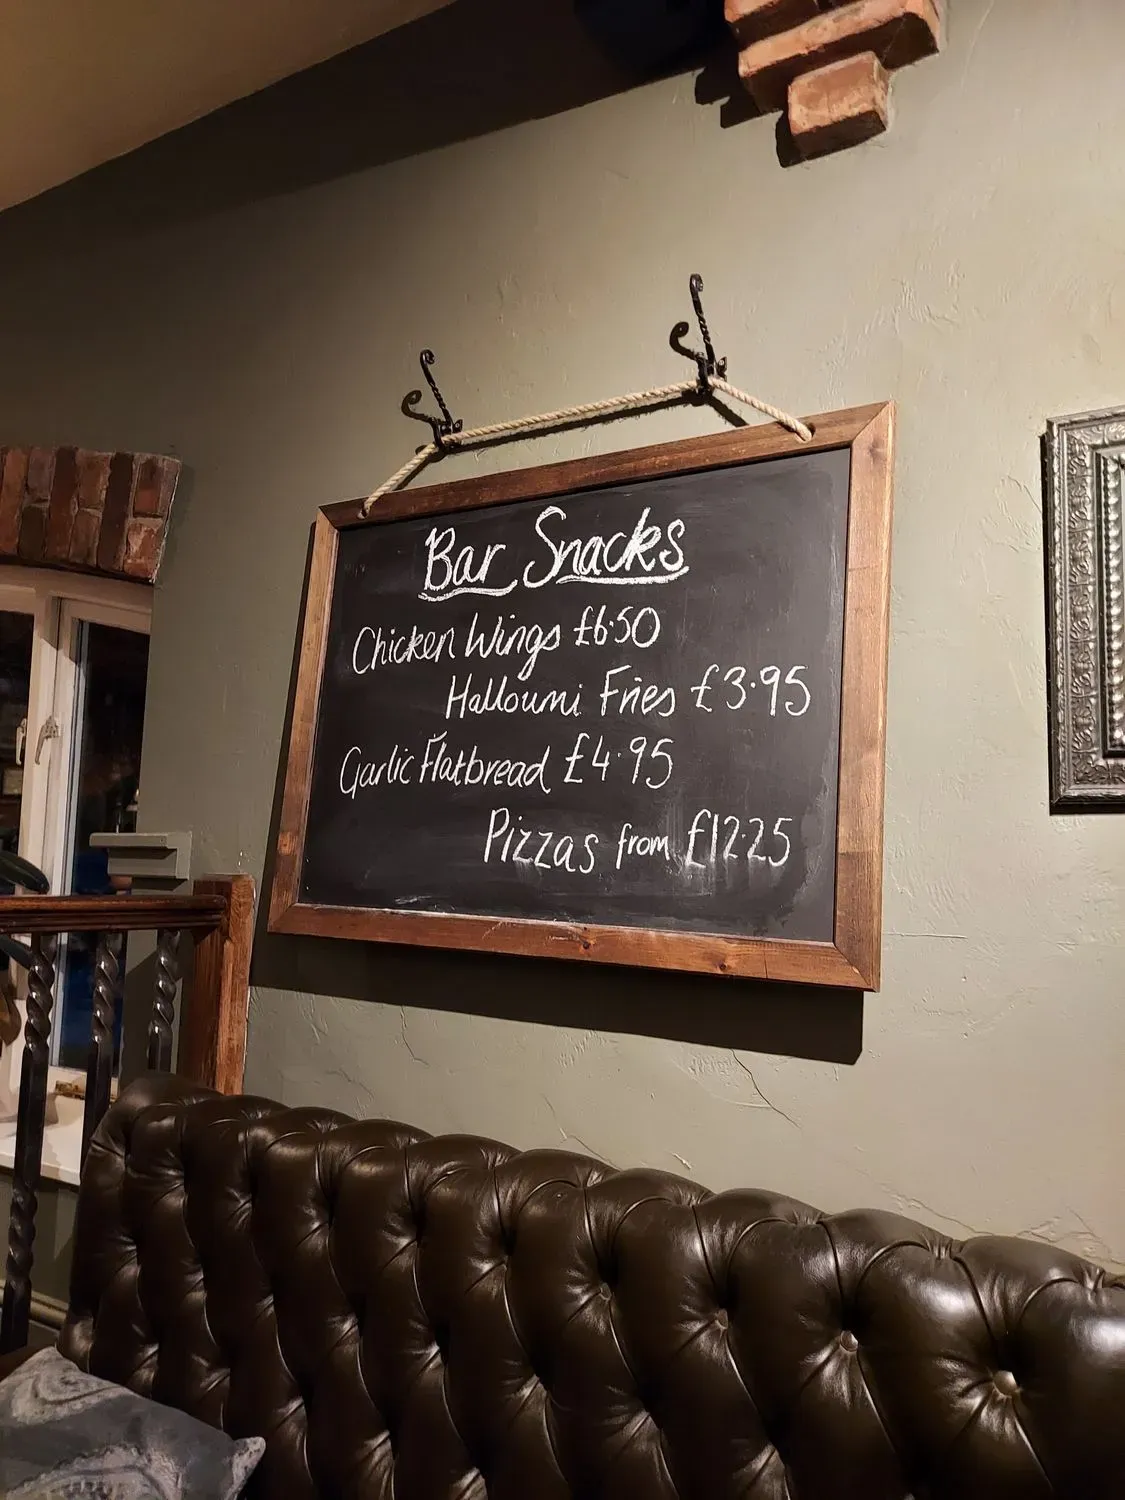 Bar Snacks
Chicken Wings £6·50
Halloumi Fries £3·95
Garlic Flatbread £4·95
Pizzas from £12·25